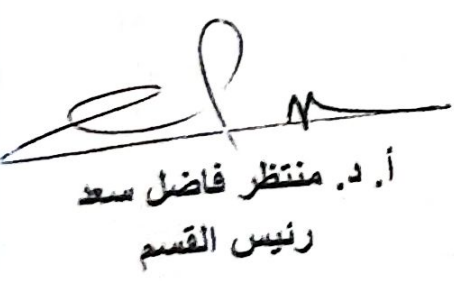 أ. د. منتظر فاضل سعد
رئيس القسم